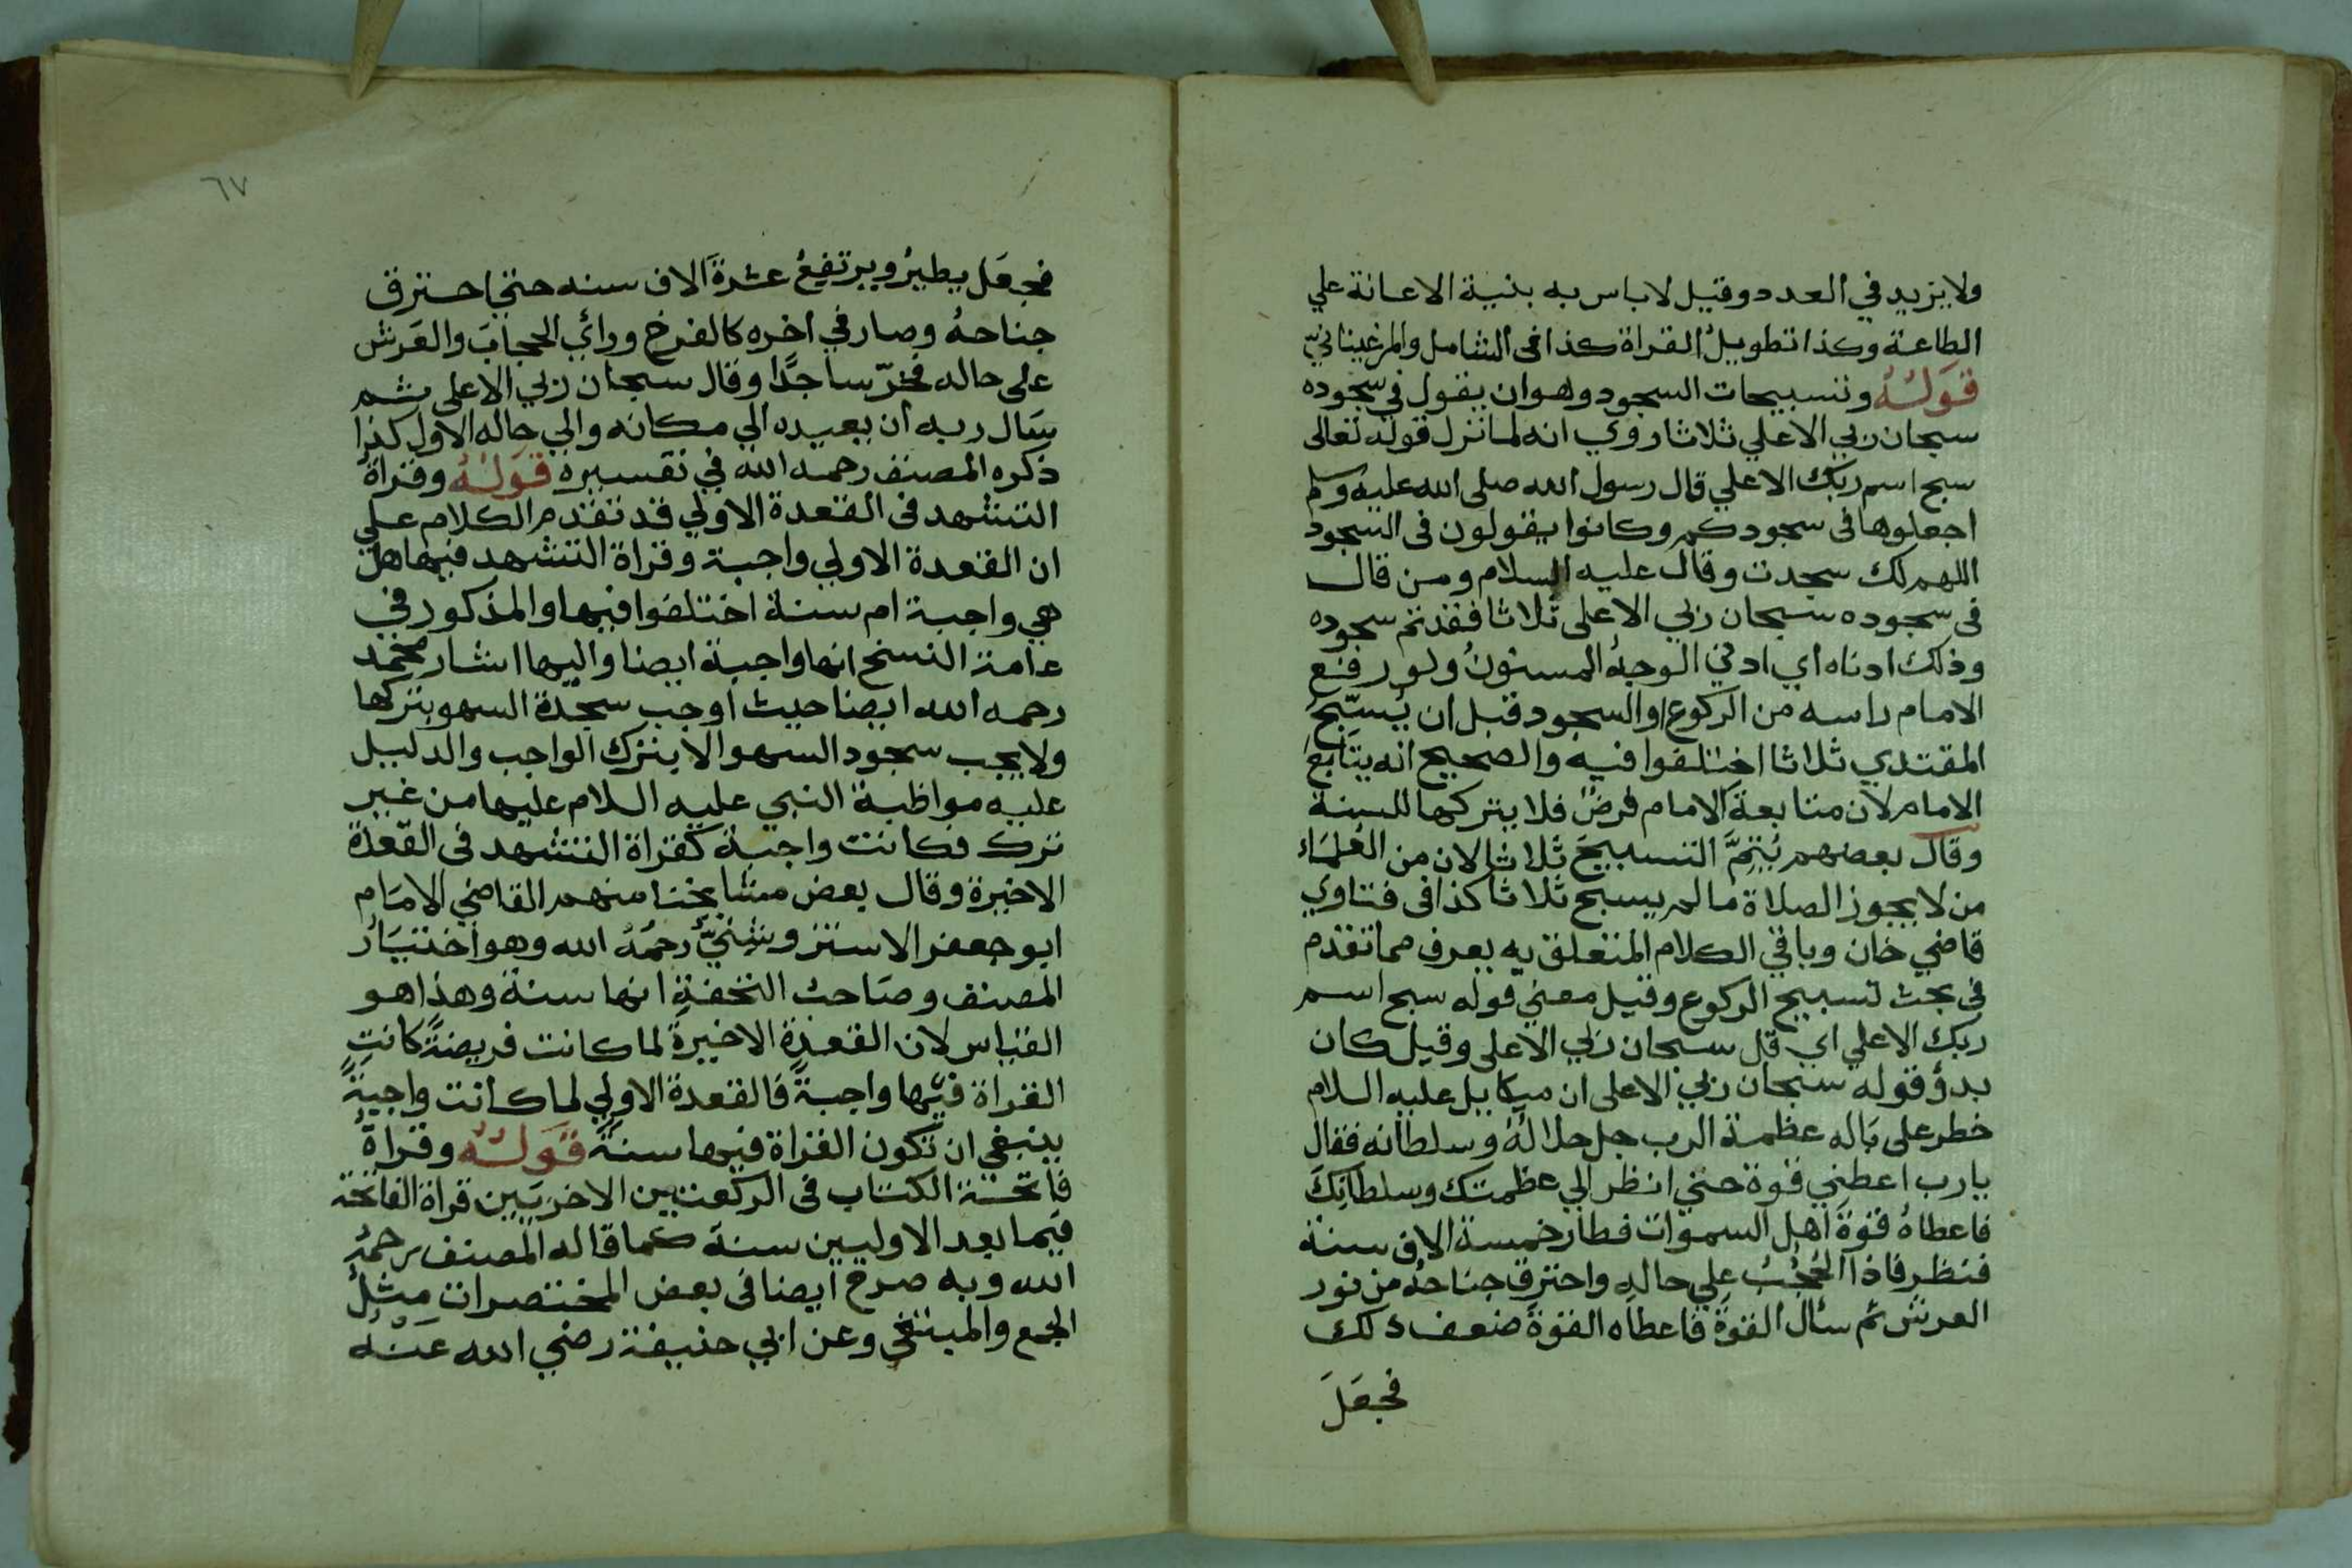 ولا يزيد في العدد وقيل لا باس به بنية الاعانة علي
الطاعة وكذا تطويل القراة كذا في الشامل والمرغيناني
قوله وتسبيحات السجود وهو ان يقول في سجوده
سبحان ربي الاعلي ثلاثا روي انه لما نزل قوله تعالى
سبح اسم ربك الاعلي قال رسول الله صلى الله عليه وسلم
اجعلوها في سجودكم وكانوا يقولون في السجود
اللهم لك سجدت وقال عليه السلام ومن قال
في سجوده سبحان ربي الاعلى ثلاثا فقد تم سجوده
وذلك ادناه اي ادني الوجه المسنون ولو رفع
الامام راسه من الركوع او السجود قبل ان يُسبّح
المقتدي ثلاثا اختلفوا فيه والصحيح انه يتابع
الامام لان متابعة الامام فرض فلا يتركها للسنة
وقال بعضهم يُتمَّ التسبيحَ ثلاثا لان من العلماء
من لا يجوز الصلاة ما لم يسبح ثلاثا كذا في فتاوي
قاضي خان وباقي الكلام المتعلق به يعرف مما تقدم
في بحث تسبيح الركوع وقيل معني قوله سبح اسم
ربك الاعلي اي قل سبحان ربي الاعلى وقيل كان
بدؤ قوله سبحان ربي الاعلى ان ميكاييل عليه السلام
خطر على باله عظمة الرب جل جلاله وسلطانه فقال
يا رب اعطني قوة حتي انظر الي عظمتك وسلطانك
فاعطاه قوة اهل السموات فطار خمسة الاف سنة
فنظر فاذا الحُجُبُ علي حاله واحترق جناحه من نور
العرش ثم سأل القوة فاعطاه القوة ضعف ذلك
فجعل
٦٧
فجعل يطير ويرتفع عشرة الاف سنه حتي احترق
جناحه وصار في اخره كالفرخ وراي الحجاب والعرش
على حاله فخرّ ساجدًا وقال سبحان ربي الاعلى ثم
سال ربه ان يعيده الي مكانه والي حاله الاول كذا
ذكره المصنف رحمه الله في تفسيره قوله وقراة
التشهد في القعدة الاولي قد تقدم الكلام علي
ان القعدة الاولي واجبة وقراة التشهد فيها هل
هي واجبة ام سنة اختلفوا فيها والمذكور في
عامة النسخ انها واجبة ايضا واليها اشار محمد
رحمه الله ايضا حيث اوجب سجدة السهو بتركها
ولا يجب سجود السهو الا بترك الواجب والدليل
عليه مواظبة النبي عليه السلام عليها من غير
ترك فكانت واجبة كقراة التشهد في القعدة
الاخيرة وقال بعض مشايخنا منهم القاضي الامام
ابو جعفر الاستروشنيّ رحمه الله وهو اختيار
المصنف وصاحب التحفة انها سنة وهذا هو
القياس لان القعدة الاخيرة لما كانت فريضةً كانت
القراة فيها واجبةً فالقعدة الاولي لما كانت واجبةً
ينبغي ان تكون القراة فيها سنة قوله وقراة
فاتحة الكتاب في الركعتين الاخريين قراة الفاتحة
فيما بعد الاوليين سنة كما قاله المصنف رحمه
الله وبه صرح ايضا في بعض المختصرات مثل
الجمع والمبتغي وعن ابي حنيفة رضي الله عنه